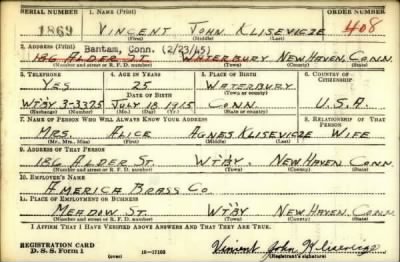 SERIAL NUMBER 1. Name (Print) ORDER NUMBER
1869 VINCENT JOHN KLISEVICZE 408
(First) (Middle) (Last)
2. Address (Print) Bantam, Conn. (2/23/45)
186 ALDER ST. WATERBURY NEW HAVEN CONN.
(Number and street or R. F. D. number) (Town) (County) (State)
3. Telephone 4. Age in Years 5. Place of Birth 6. Country of Citizenship
YES 25 WATERBURY
Date of Birth (Town or county)
WTBY 3-3325 JULY 18 1915 CONN. U.S.A.
(Exchange) (Number) (Mo.) (Day) (Yr.) (State or country)
7. Name of Person Who Will Always Know Your Address 8. Relationship of That Person
MRS. ALICE AGNES KLISEVICZE WIFE
(Mr., Mrs., Miss) (First) (Middle) (Last)
9. Address of That Person
186 ALDER ST. WT'BY NEW HAVEN CONN
(Number and street or R. F. D. number) (Town) (County) (State)
10. Employer's Name
AMERICA BRASS CO.
11. Place of Employment or Business
MEADOW ST. WT'BY NEW HAVEN CONN.
(Number and street or R. F. D. number) (Town) (County) (State)
I Affirm That I Have Verified Above Answers and That They Are True.
REGISTRATION CARD
D. S. S. Form 1 (over) 16-17105 Vincent John Klisevicze
(Registrant's signature)